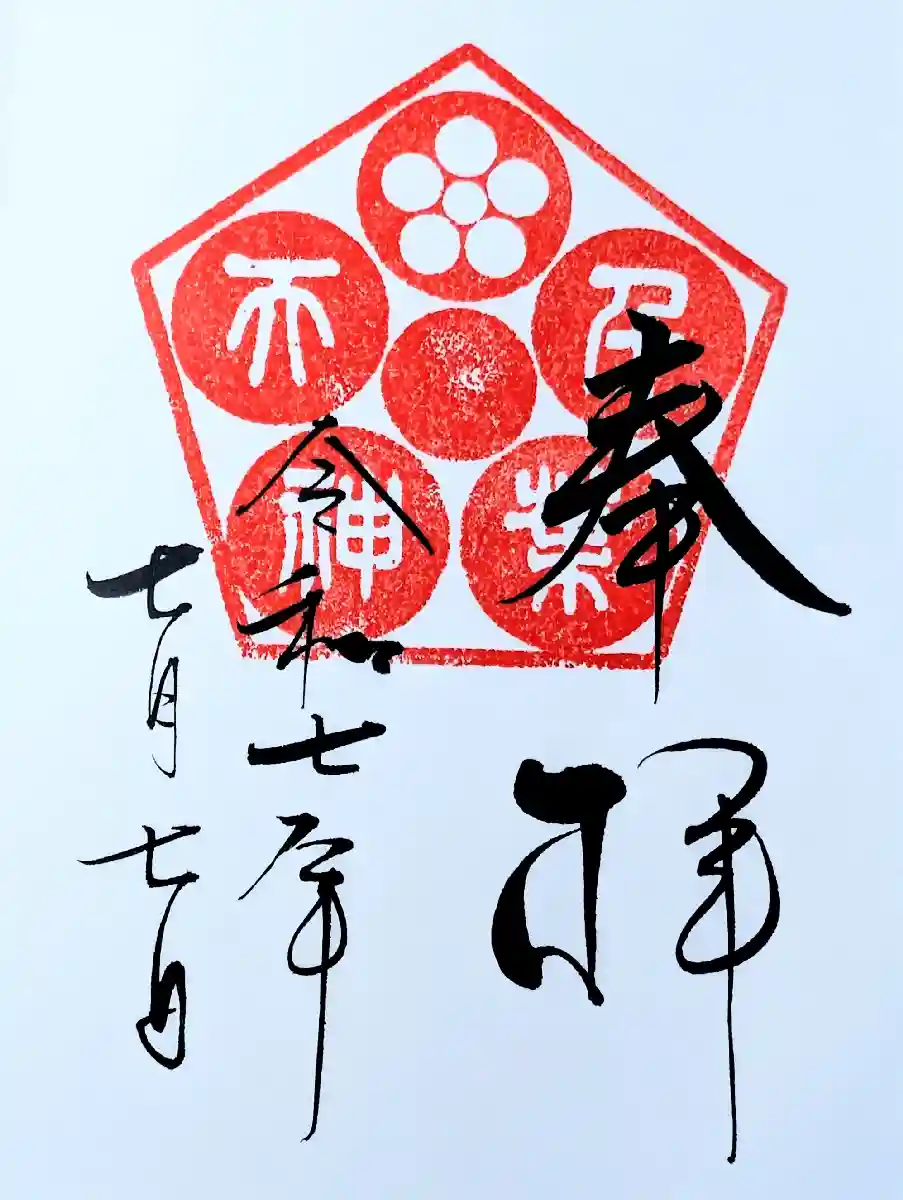 奉拝
千葉
天神
令和七年
七月七日